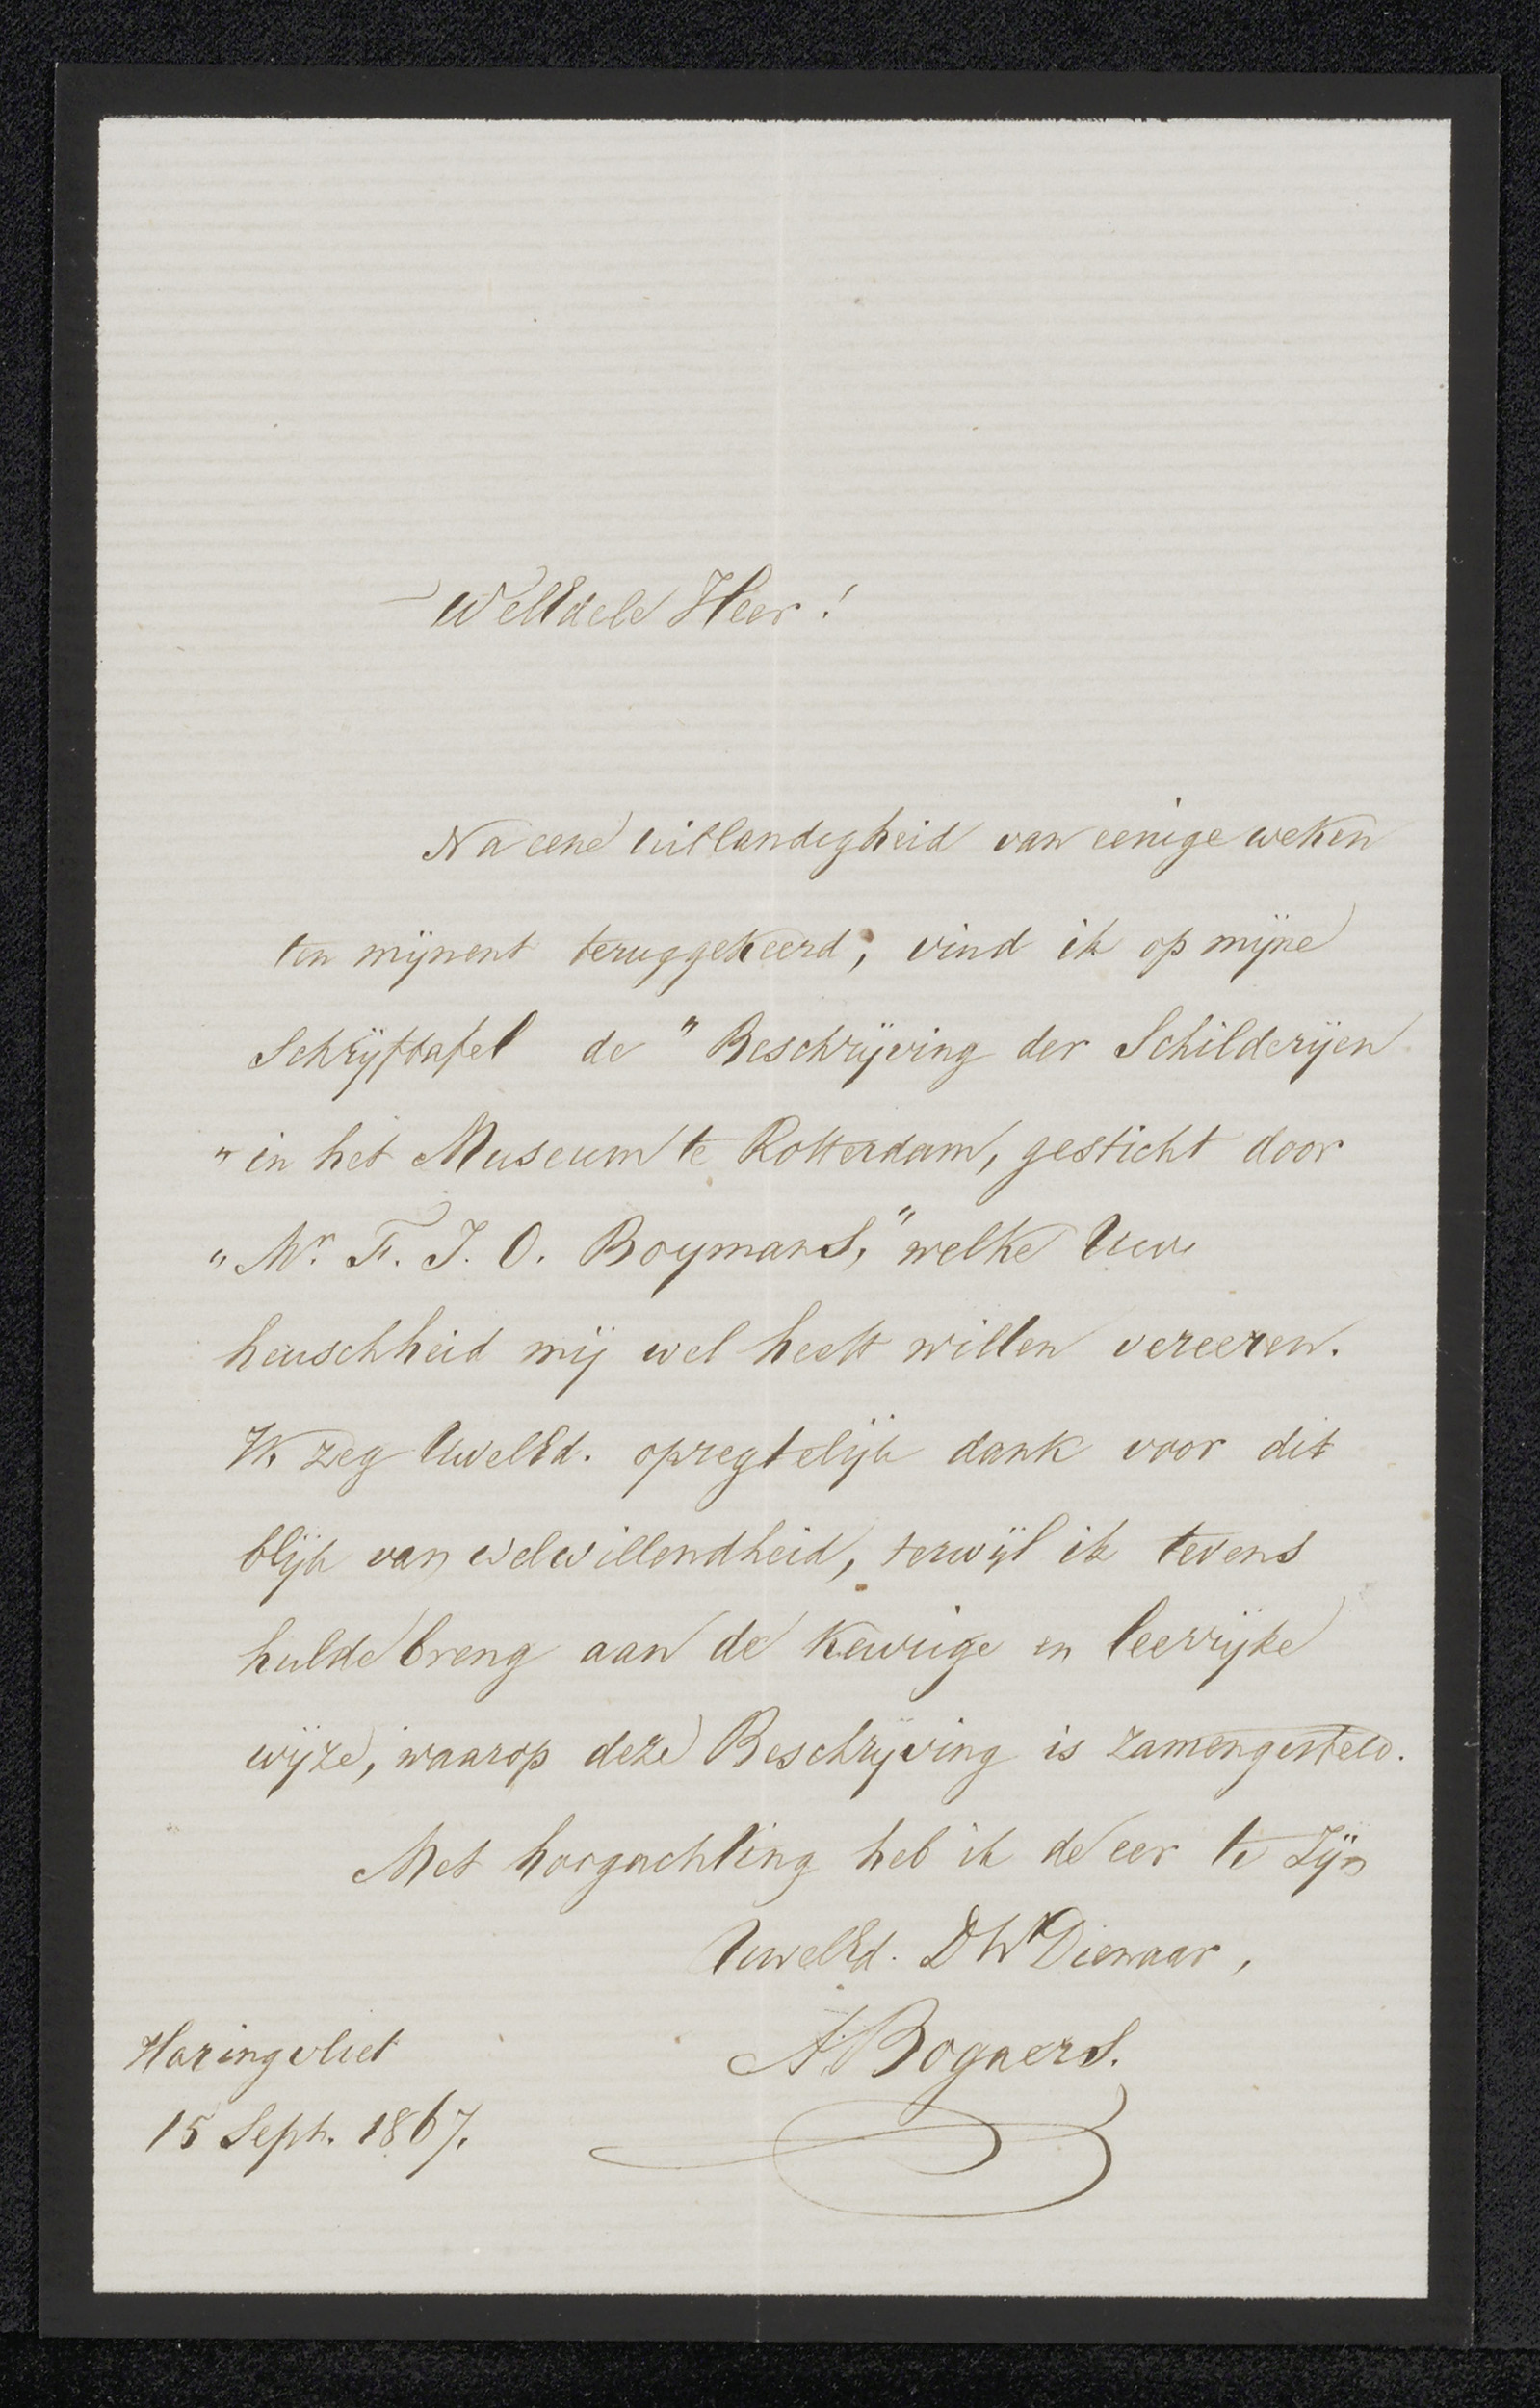 WelEdele Heer!
Na eene uitlandigheid van eenige weken
ten mijnent teruggekeerd, vind ik op mijne
Schrijftafel de "Beschrijving der Schilderijen
"in het Museum te Rotterdam, gesticht door
"Mr. F. J. O. Boymans," welke Uw
heuschheid mij wel heeft willen vereeren.
Ik zeg UwelEd. opregtelijk dank voor dit
blijk van welwillendheid, terwijl ik tevens
hulde breng aan de keurige en leerrijke
wijze, waarop deze Beschrijving is zamengesteld.
Met hoogachting heb ik de eer te zijn
UwelEd. DWDienaar,
A. Bogaers.
Haringvliet
15 Sept. 1867.